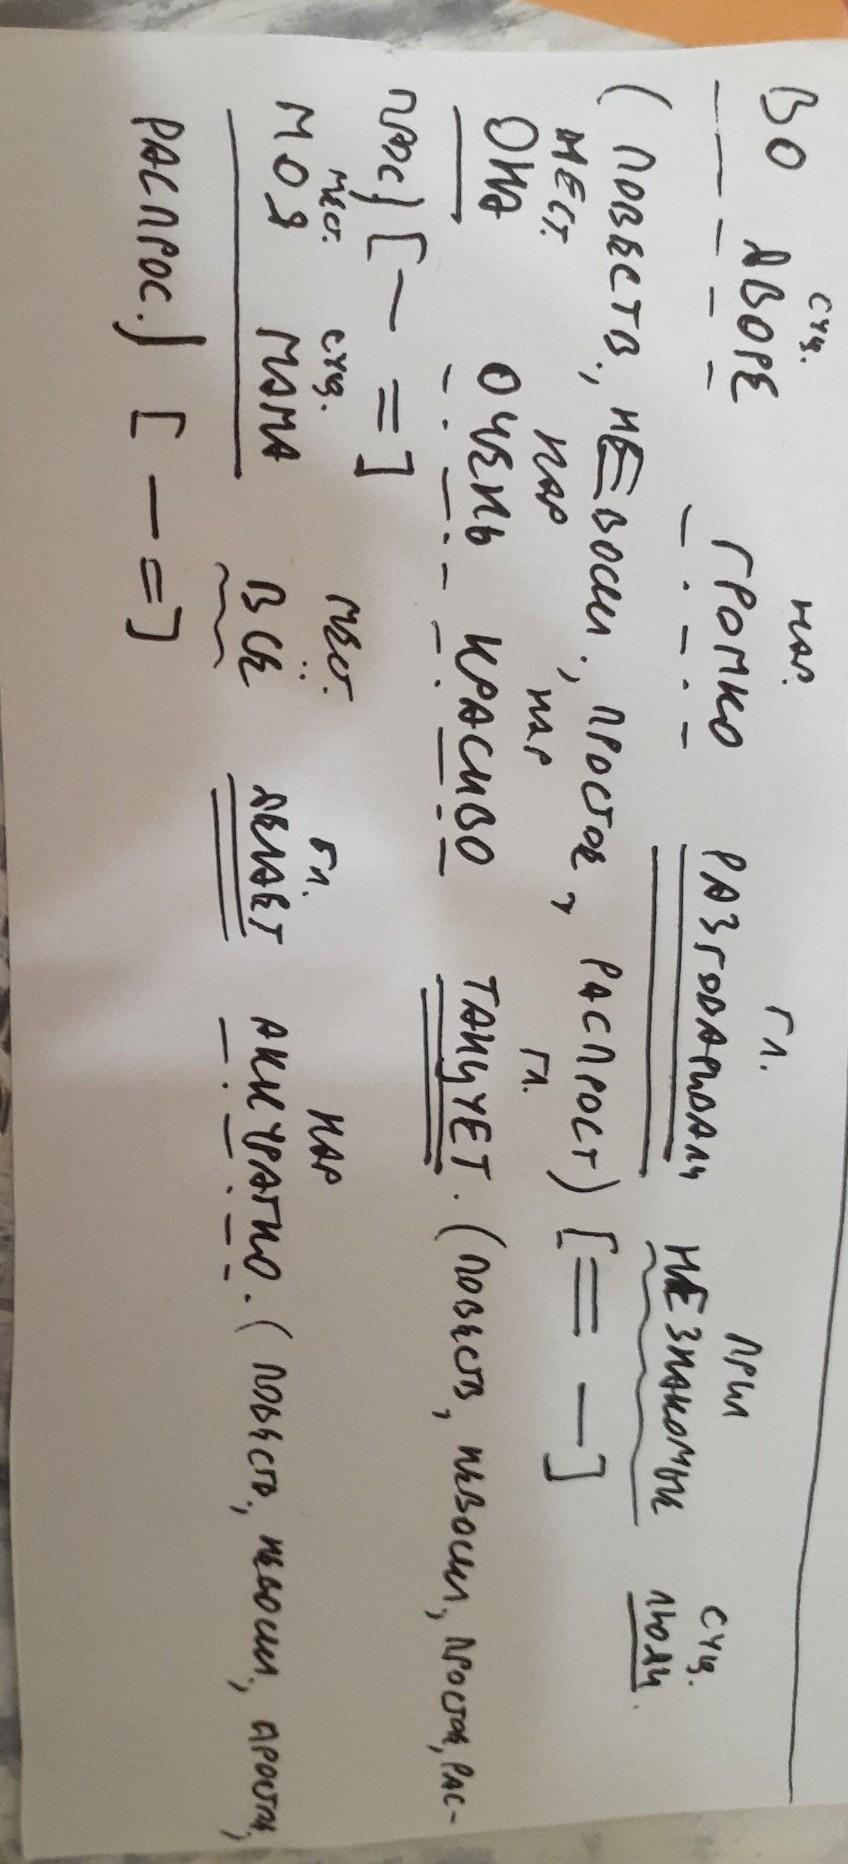 сущ. нар. гл. прил сущ.
ВО ДВОРЕ ГРОМКО РАЗГОВАРИВАЛИ НЕЗНАКОМЫЕ ЛЮДИ.
(ПОВЕСТВ., НЕВОСКЛ., ПРОСТОЕ, РАСПРОСТ) [= –]
МЕСТ. НАР НАР ГЛ.
ОНА ОЧЕНЬ КРАСИВО ТАНЦУЕТ. (ПОВЕСТВ, НЕВОСКЛ, ПРОСТОЕ, РАС-
ПРОС) [– =]
МЕСТ. СУЩ. МЕСТ. ГЛ. НАР
МОЯ МАМА ВСЁ ДЕЛАЕТ АККУРАТНО. (ПОВЕСТВ, НЕВОСКЛ, ПРОСТОЕ,
РАСПРОС.) [– =]